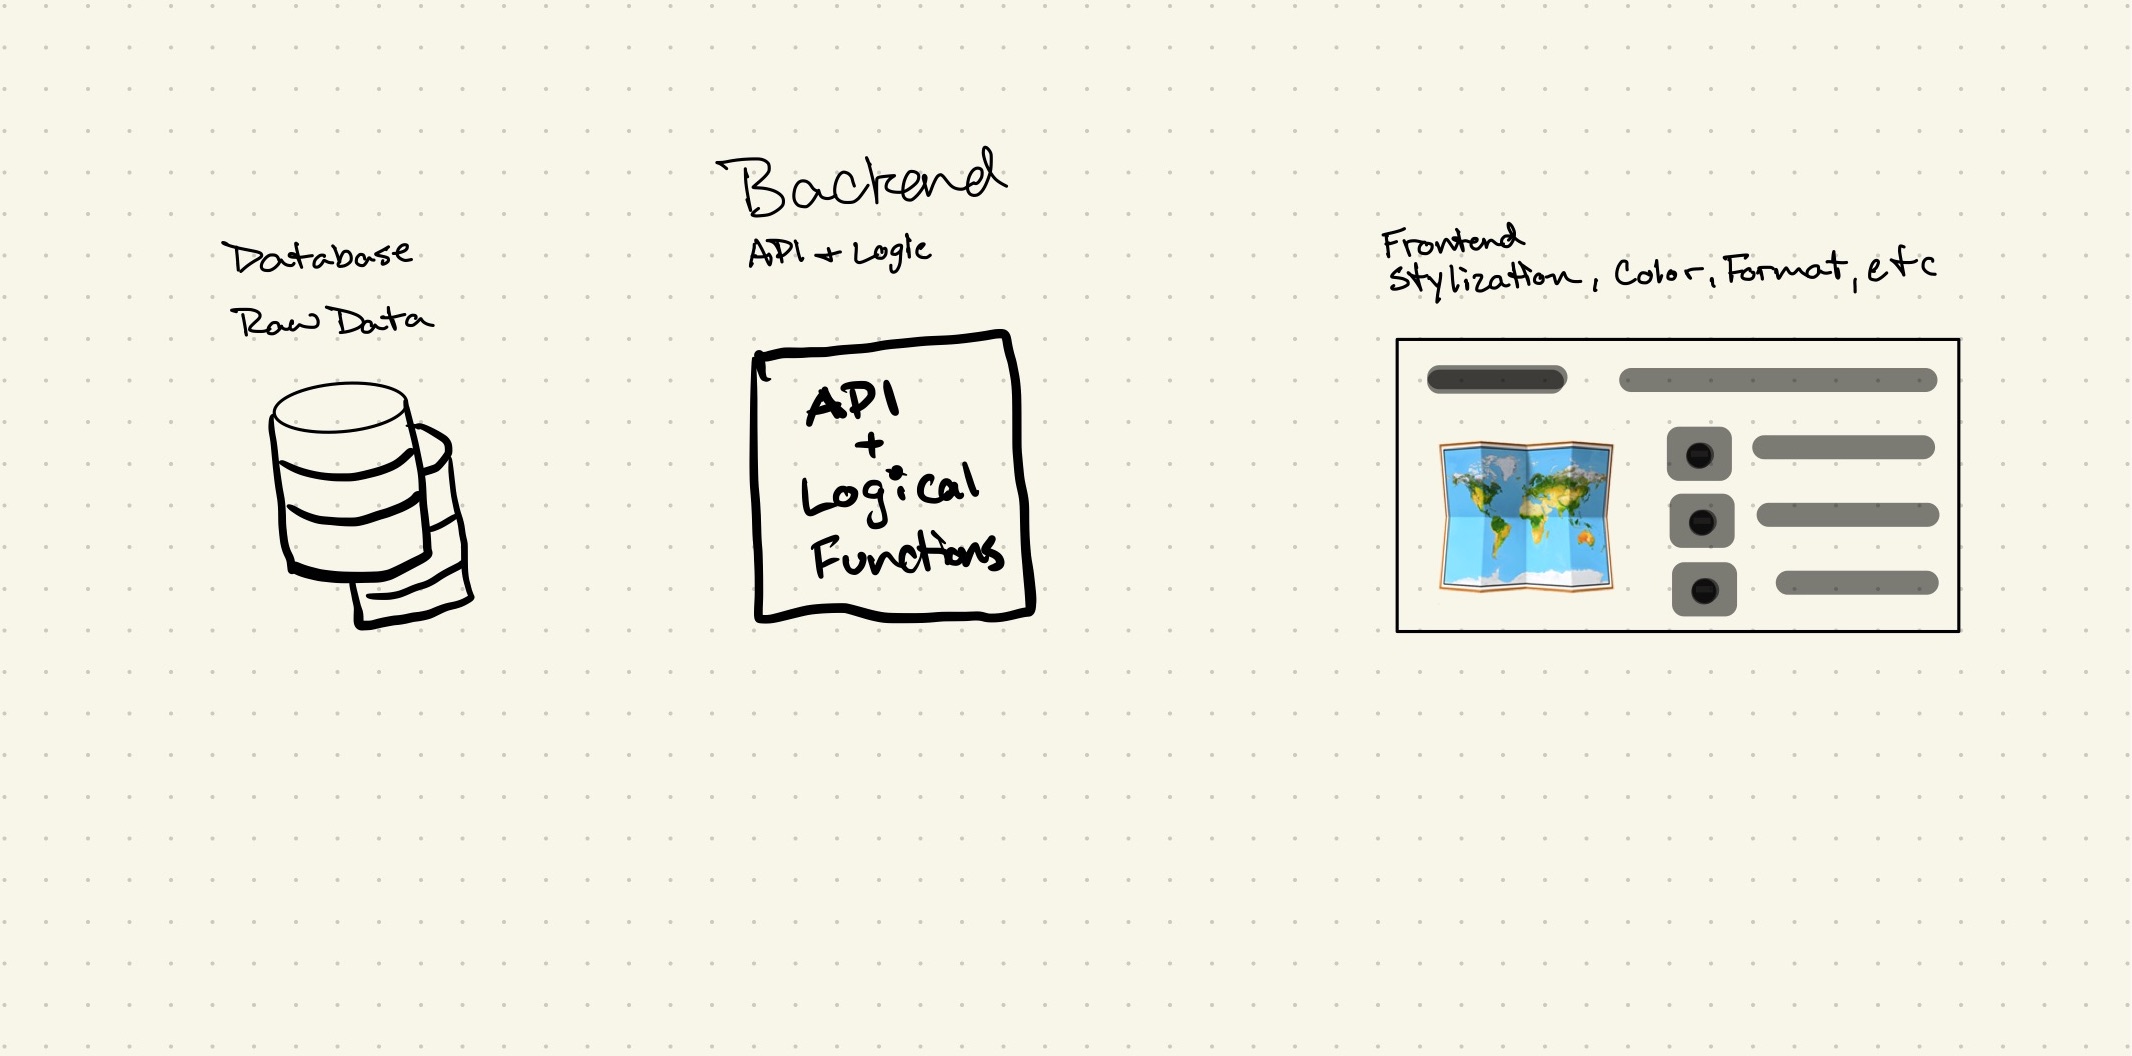 Database
Raw Data
Backend
API + Logic
API
+
Logical
Functions
Frontend
Stylization, Color, Format, etc